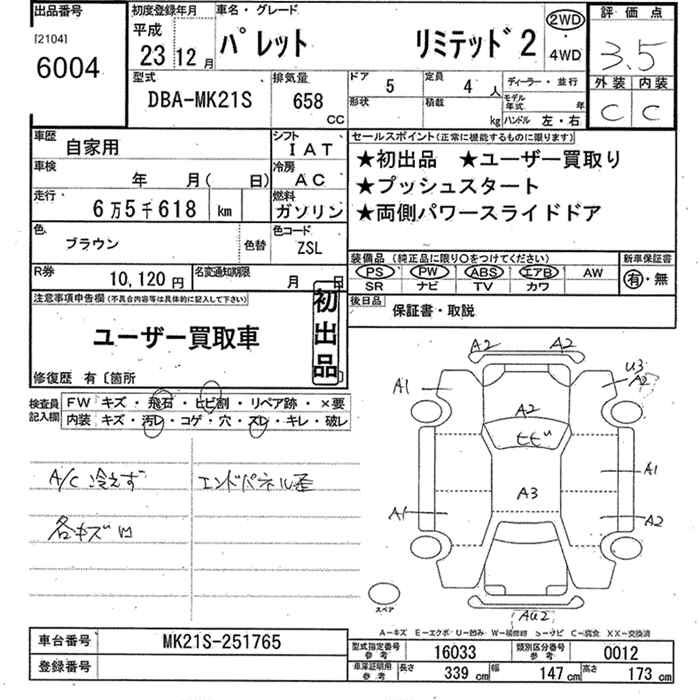 出品番号 初度登録年月 車名・グレード 評価点
[2104] 平成
6004 23 12月 パレット リミテッド2 2WD 4WD 3.5
型式 排気量 ドア 定員 ディーラー・並行 外装 内装
DBA-MK21S 658 CC 5 4人 C C
形状 積載 kg モデル年式 年
ハンドル 左・右
車歴 自家用 シフト IAT セールスポイント(正常に機能するものに限ります)
車検 年 月( 日) 冷房 AC ★初出品 ★ユーザー買取り
走行 6万5千618 km 燃料 ガソリン ★プッシュスタート
★両側パワースライドドア
色 ブラウン 色替 色コード ZSL
装備品(純正品に限り○をつけてください) 新車保証書
PS PW ABS エアB AW 有・無
SR ナビ TV カワ
R券 10,120円 名変通知期限 月 日
後日品 保証書・取説
注意事項申告欄(不具合内容等は具体的に記入して下さい) 初出品
ユーザー買取車
修復歴 有〔箇所
検査員記入欄 FW キズ・飛石・ヒビ割・リペア跡・×要
内装 キズ・汚レ・コゲ・穴・スレ・キレ・破レ
A/C 冷えず エンドパネル歪
各キズ凹
A2 A2
A1 U3 A2
A2
ヒビ
A1
A3
A1 A2
スペア
AU2
A－キズ E－エクボ U－凹み W－補修跡 S－サビ C－腐食 XX－交換済
車台番号 MK21S-251765
登録番号
型式指定番号 参考 16033 類別区分番号 参考 0012
車庫証明用 参考 長さ 339 cm 幅 147 cm 高さ 173 cm